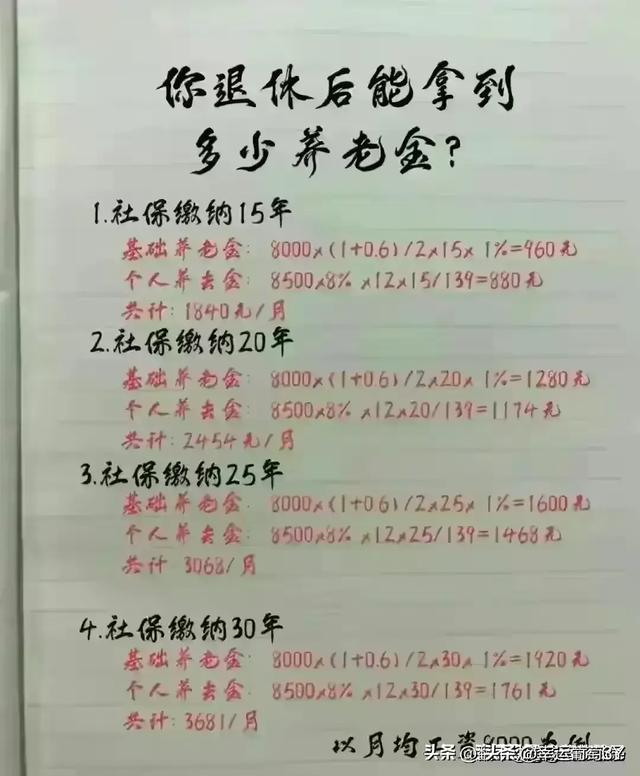 你退休后能拿到
多少养老金?
1.社保缴纳15年
基础养老金: 8000×(1+0.6)/2×15×1%=960元
个人养去金: 8500×8%×12×15/139=880元
共计: 1840元/月
2.社保缴纳20年
基础养老金: 8000×(1+0.6)/2×20×1%=1280元
个人养去金: 8500×8%×12×20/139=1174元
共计: 2454元/月
3.社保缴纳25年
基础养老金: 8000×(1+0.6)/2×25×1%=1600元
个人养去金: 8500×8%×12×25/139=1468元
共计 3068/月
4.社保缴纳30年
基础养老金: 8000×(1+0.6)/2×30×1%=1920元
个人养去金: 8500×8%×12×30/139=1761元
共计: 3681/月
以月均工资8000为例
头条